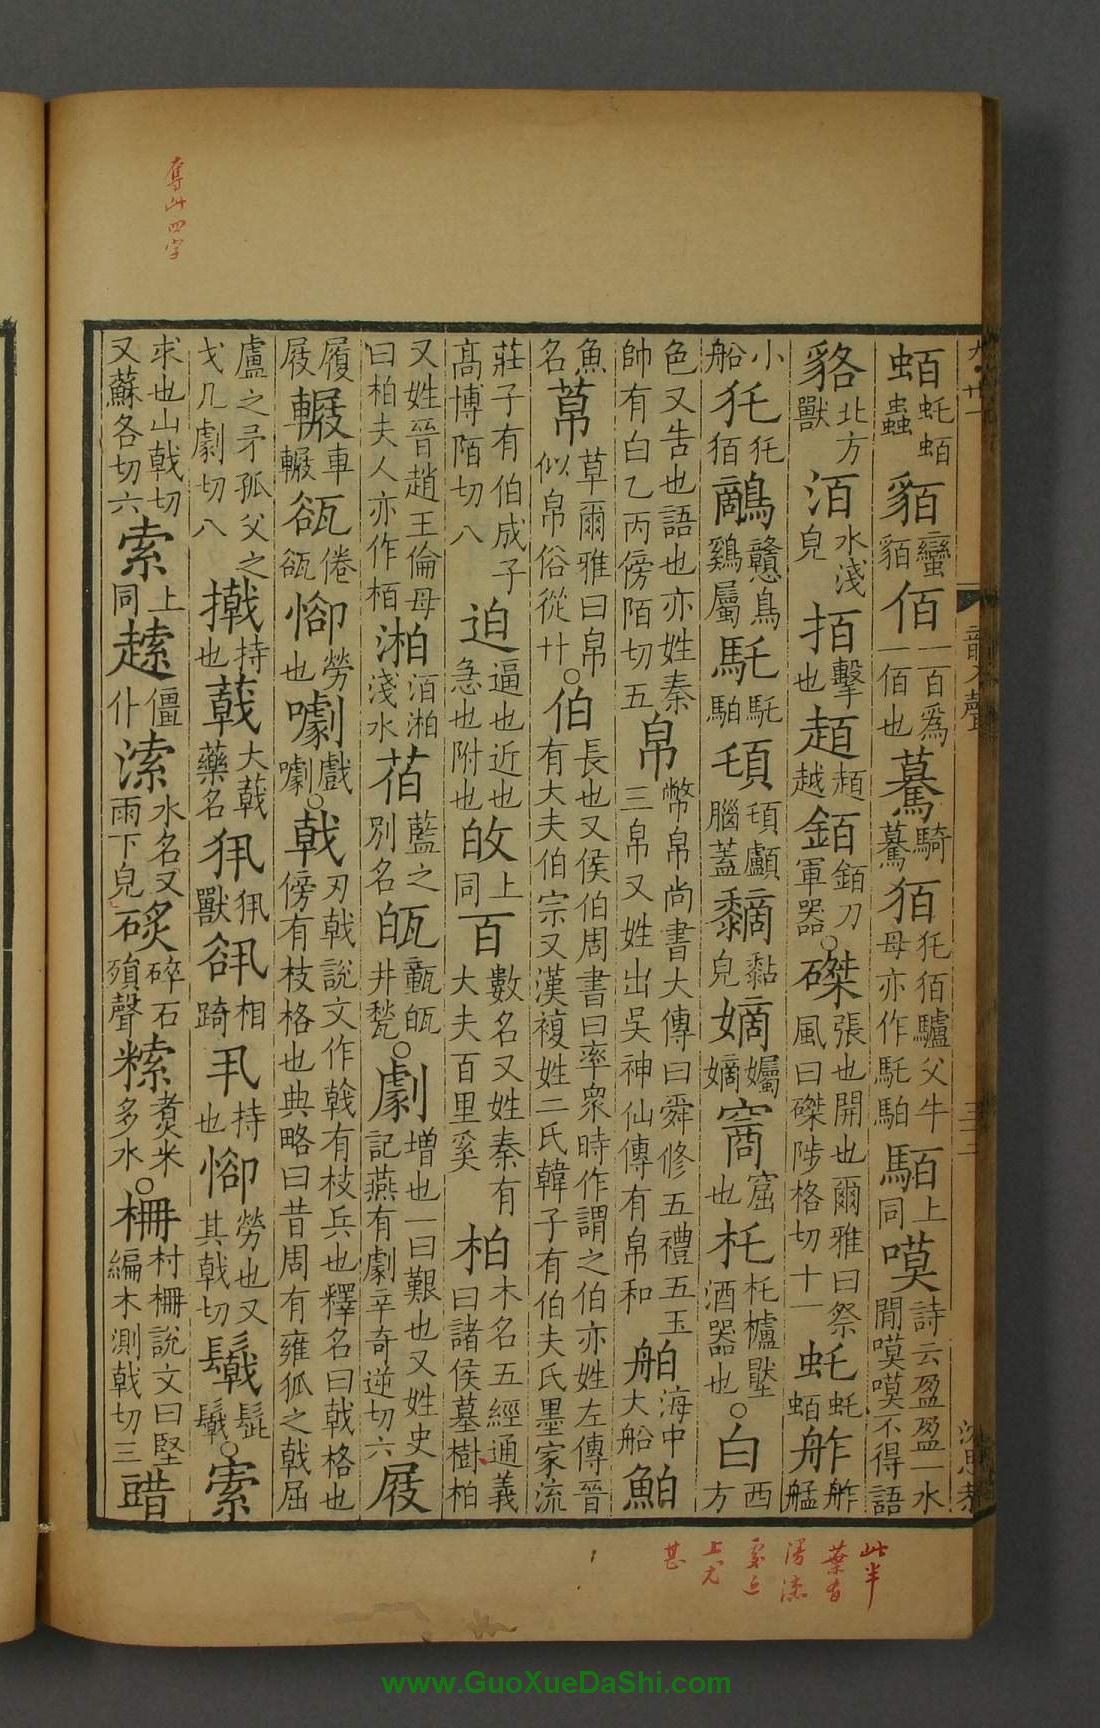 蛨虴蛨蟲貊蠻貊佰一百爲一佰也驀騎驀㹮㹠㹮驢父牛母亦作馲䮂䮂上同嗼詩云盈盈一水閒嗼嗼不得語
貉北方獸洦水淺皃拍擊也趏趏越鉑鉑刀軍器○磔張也開也爾雅曰祭風曰磔陟格切十一虴虴蛨舴舴艋
小船㹠㹠㹮鸐戇鳥鷄屬馲馲䮂頙頙顱腦蓋黐黏皃嫡孎嫡窩窟也杔杔櫨㯺酒器也○白西方
色又告也語也亦姓秦帥有白乙丙傍陌切五帛幣帛尚書大傳曰舜修五禮五玉三帛又姓出吳神仙傳有帛和舶海中大船鮊
魚名蒪草爾雅曰帛似帛俗從艹○伯長也又侯伯周書曰率衆時作謂之伯亦姓左傳晉有大夫伯宗又漢複姓二氏韓子有伯夫氏墨家流
莊子有伯成子高博陌切八迫逼也近也急也附也敀上同百數名又姓秦有大夫百里奚柏木名五經通義曰諸侯墓樹柏
又姓晉趙王倫母曰柏夫人亦作栢湘洦湘淺水萡藍之別名瓳㼾瓳井甃○劇增也一曰艱也又姓史記燕有劇辛奇逆切六屐
履屐輾車輾㼤倦㼤㥛勞也噱戲噱○戟刃戟說文作𢧢有枝兵也釋名曰戟格也傍有枝格也典略曰昔周有雍狐之戟屈
盧之矛孤父之戈几劇切八撠持也蕺大蕺藥名狘狘獸谻相踦丮持也㥛勞也又其戟切䰙髭䰙○索
求也山戟切又蘇各切六索上同䞽僵仆溹水名又雨下皃硳碎石殞聲䊛煮米多水○柵村柵說文曰堅編木測戟切三䣢
龍入聲
沈思恭
奪此四字
此半
葉有
湯漆
處近
上尤
甚
www.GuoXueDaShi.com